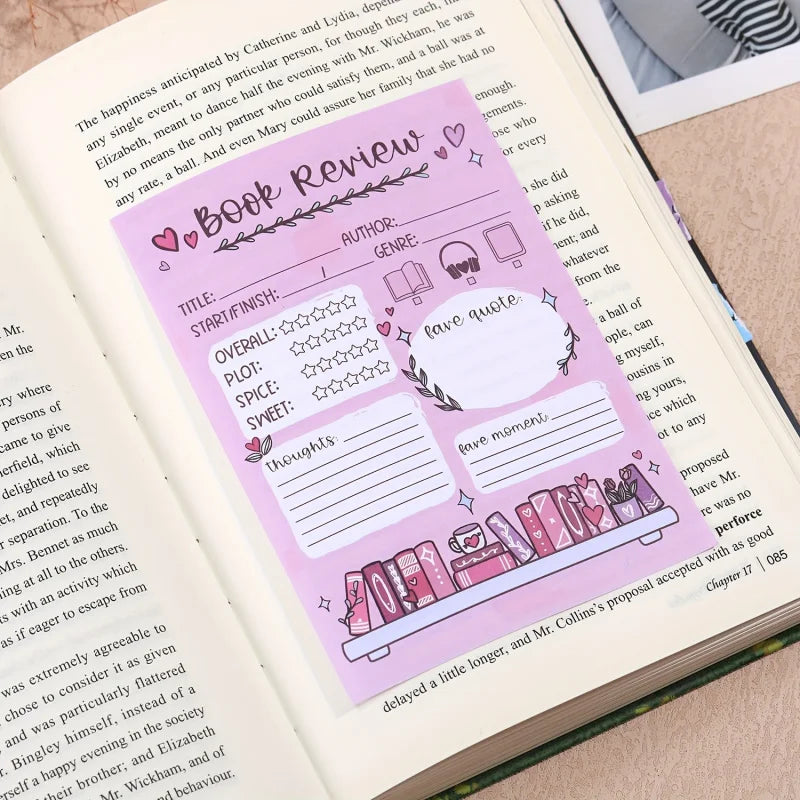 Mr.
en the
ery where
persons of
came to give
herfield, which
delighted to see
et, and repeatedly
r separation. To the
Mrs. Bennet as much
ning at all to the others.
ts with an activity which
as if eager to escape from
was extremely agreeable to
chose to consider it as given
and was particularly flattered
Bingley himself, instead of a
erself a happy evening in the society
their brother; and Elizabeth
Mr. Wickham, and of
d behaviour.
The happiness anticipated by Catherine and Lydia, depe
any single event, or any particular person, for though they each,
Elizabeth, meant to dance half the evening with Mr. Wickham, he was
by no means the only partner who could satisfy them, and a ball was at
any rate, a ball. And even Mary could assure her family that she had no
Book Review
TITLE:
AUTHOR:
START/FINISH: /
GENRE:
OVERALL:
PLOT:
SPICE:
SWEET:
fave quote:
thoughts:
fave moment:
enough.
gements.
ose who
for every
she did
p asking
if he did,
ment; and
whatever
from the
a ball of
ople, can
g myself,
cousins in
ng yours,
ce which
ot to any
proposed
have Mr.
re was no
perforce
delayed a little longer, and Mr. Collins's proposal accepted with as good
Chapter 17 | 085